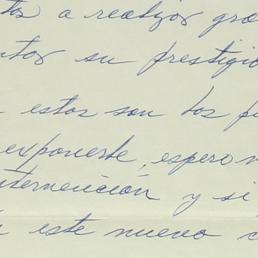 a realizar gra
su prestigio
estos son los
exponerte, espero
intervención y si
este nuevo c